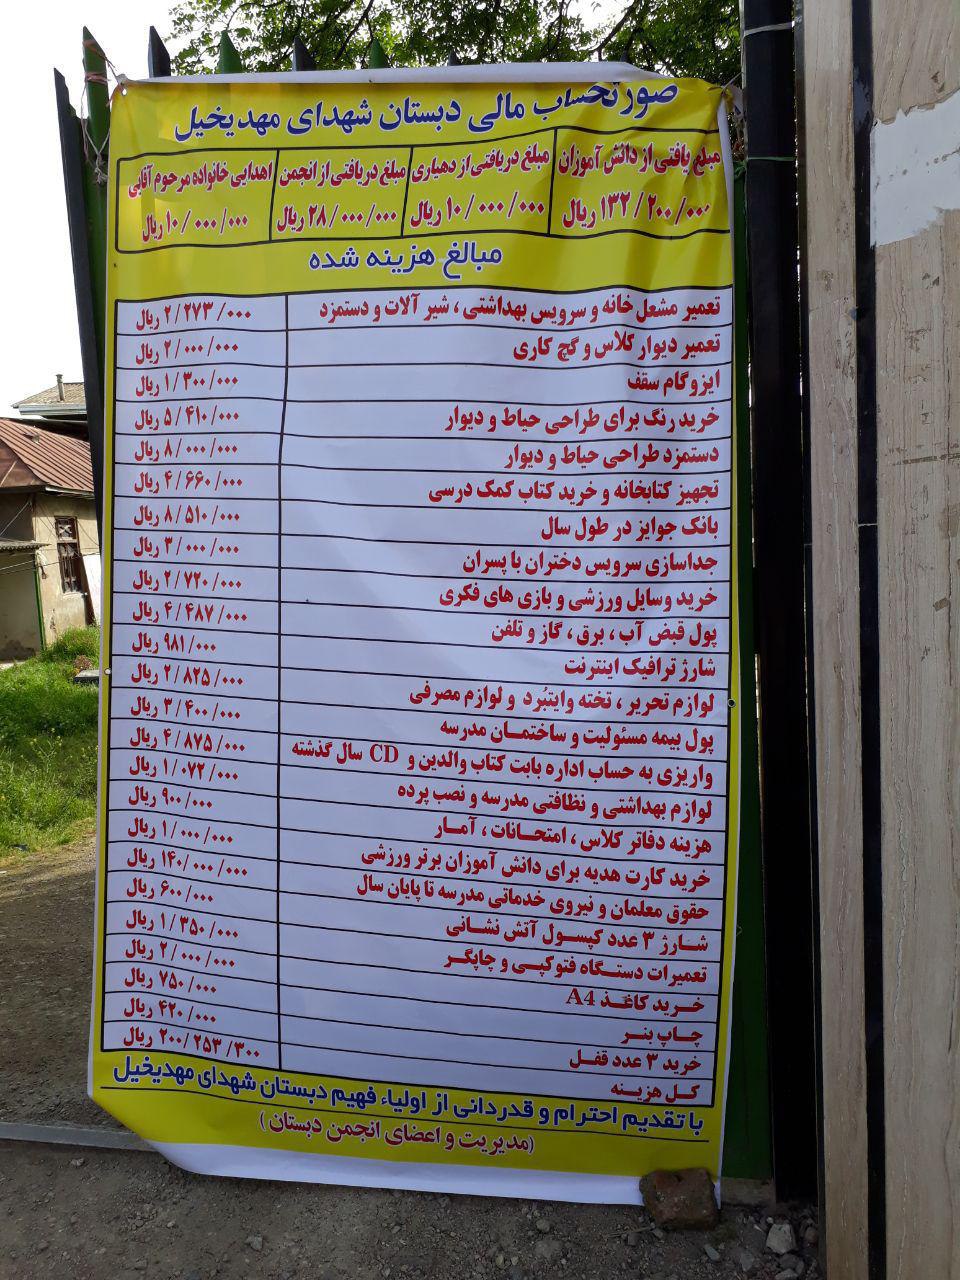 صورتحساب مالی دبستان شهدای مهدیخیل
مبلغ یافتی از دانش آموزان مبلغ دریافتی از دهیاری مبلغ دریافتی از انجمن اهدایی خانواده مرحوم آقایی
۱۳۲/۲۰۰/۰۰۰ ریال ۱۰/۰۰۰/۰۰۰ ریال ۲۸/۰۰۰/۰۰۰ ریال ۱۰/۰۰۰/۰۰۰ ریال
مبالغ هزینه شده
تعمیر مشعل خانه و سرویس بهداشتی ، شیر آلات و دستمزد ۲/۲۷۳/۰۰۰ ریال
تعمیر دیوار کلاس و گچ کاری ۲/۰۰۰/۰۰۰ ریال
ایزوگام سقف ۱/۳۰۰/۰۰۰ ریال
خرید رنگ برای طراحی حیاط و دیوار ۵/۴۱۰/۰۰۰ ریال
دستمزد طراحی حیاط و دیوار ۸/۰۰۰/۰۰۰ ریال
تجهیز کتابخانه و خرید کتاب کمک درسی ۴/۶۶۰/۰۰۰ ریال
بانک جوایز در طول سال ۸/۵۱۰/۰۰۰ ریال
جداسازی سرویس دختران با پسران ۳/۰۰۰/۰۰۰ ریال
خرید وسایل ورزشی و بازی های فکری ۲/۷۲۰/۰۰۰ ریال
پول قبض آب ، برق ، گاز و تلفن ۴/۴۸۷/۰۰۰ ریال
شارژ ترافیک اینترنت ۹۸۱/۰۰۰ ریال
لوازم تحریر ، تخته وایتبُرد و لوازم مصرفی ۲/۸۲۵/۰۰۰ ریال
پول بیمه مسئولیت و ساختمان مدرسه ۳/۴۰۰/۰۰۰ ریال
واریزی به حساب اداره بابت کتاب والدین و CD سال گذشته ۴/۸۷۵/۰۰۰ ریال
لوازم بهداشتی و نظافتی مدرسه و نصب پرده ۱/۰۷۲/۰۰۰ ریال
هزینه دفاتر کلاس ، امتحانات ، آمار ۹۰۰/۰۰۰ ریال
خرید کارت هدیه برای دانش آموزان برتر ورزشی ۱/۰۰۰/۰۰۰ ریال
حقوق معلمان و نیروی خدماتی مدرسه تا پایان سال ۱۴۰/۰۰۰/۰۰۰ ریال
شارژ ۳ عدد کپسول آتش نشانی ۶۰۰/۰۰۰ ریال
تعمیرات دستگاه فتوکپی و چاپگر ۱/۳۵۰/۰۰۰ ریال
خرید کاغذ A4 ۲/۰۰۰/۰۰۰ ریال
چاپ بنر ۷۵۰/۰۰۰ ریال
خرید ۳ عدد قفل ۴۲۰/۰۰۰ ریال
کل هزینه ۲۰۰/۲۵۳/۳۰۰ ریال
با تقدیم احترام و قدردانی از اولیاء فهیم دبستان شهدای مهدیخیل
(مدیریت و اعضای انجمن دبستان)